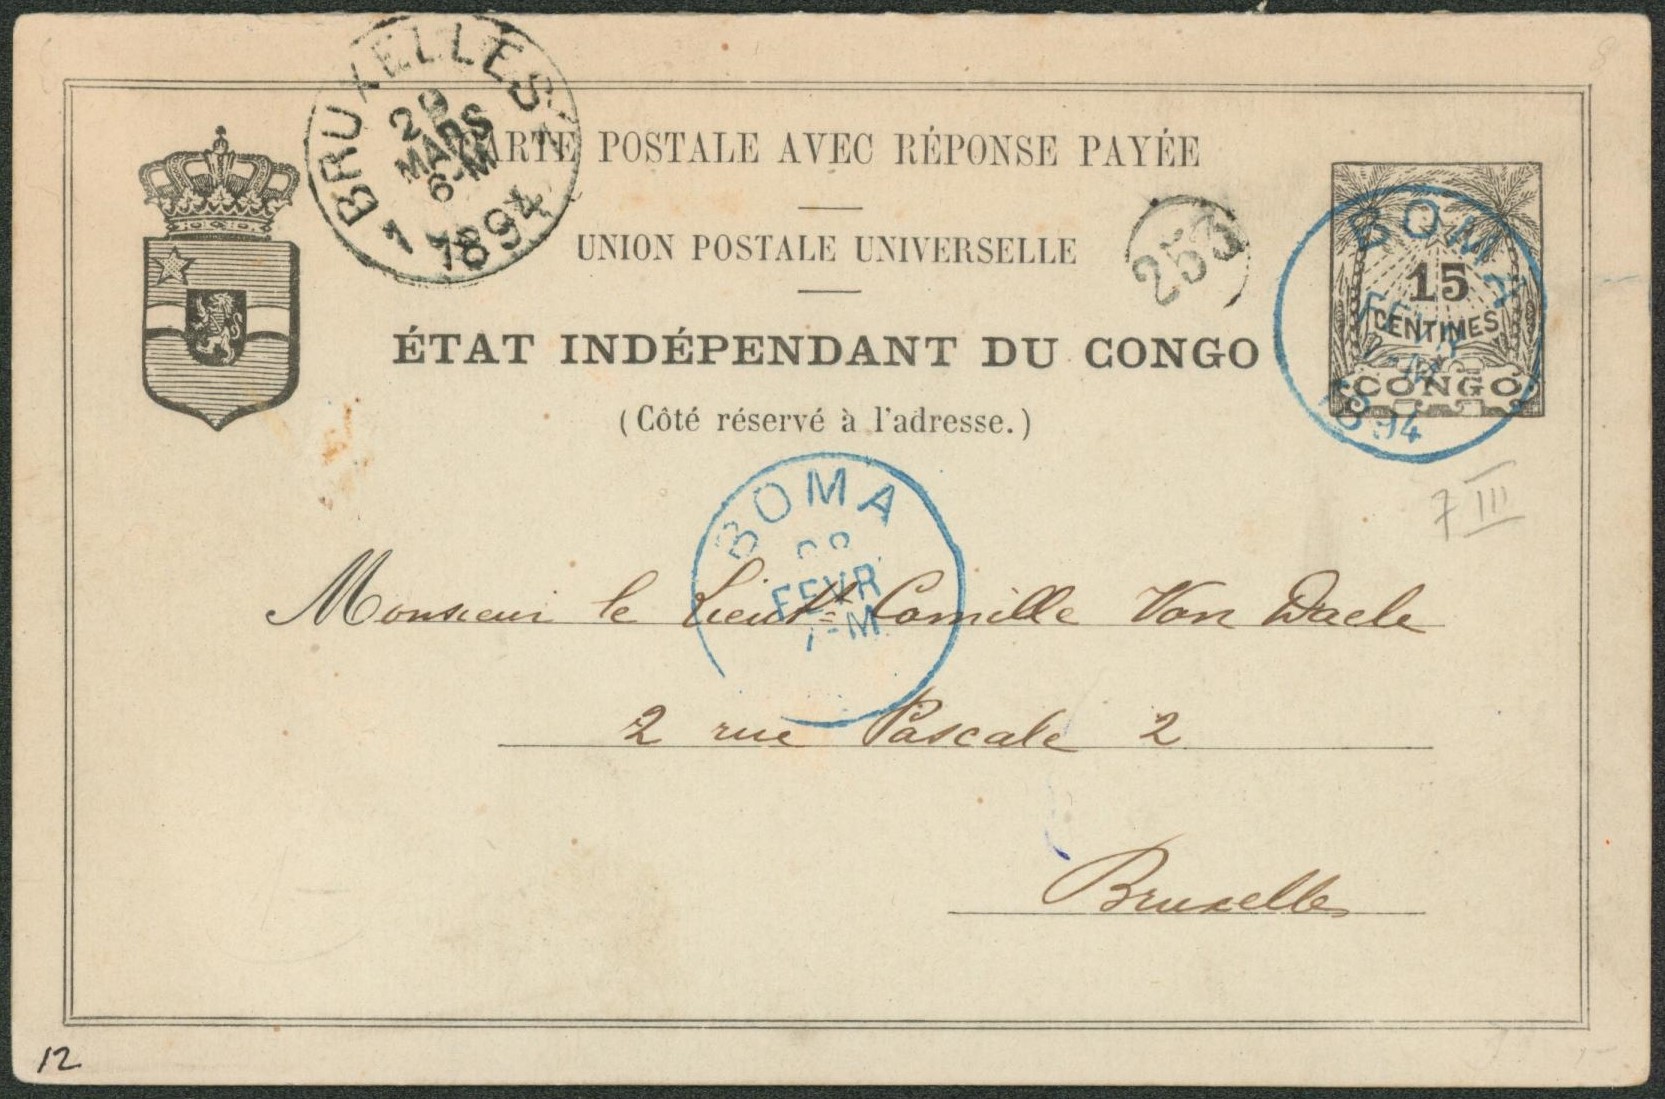 BRUXELLES 1
29
MARS
6-M
1894
CARTE POSTALE AVEC RÉPONSE PAYÉE
UNION POSTALE UNIVERSELLE
253
ÉTAT INDÉPENDANT DU CONGO
(Côté réservé à l'adresse.)
15
CENTIMES
CONGO
BOMA
FEVR
7-M
1894
7 III
BOMA
FEVR
7-M
Monsieur le Lieutt Camille Van Daele
2 rue Pascale 2
Bruxelles
12